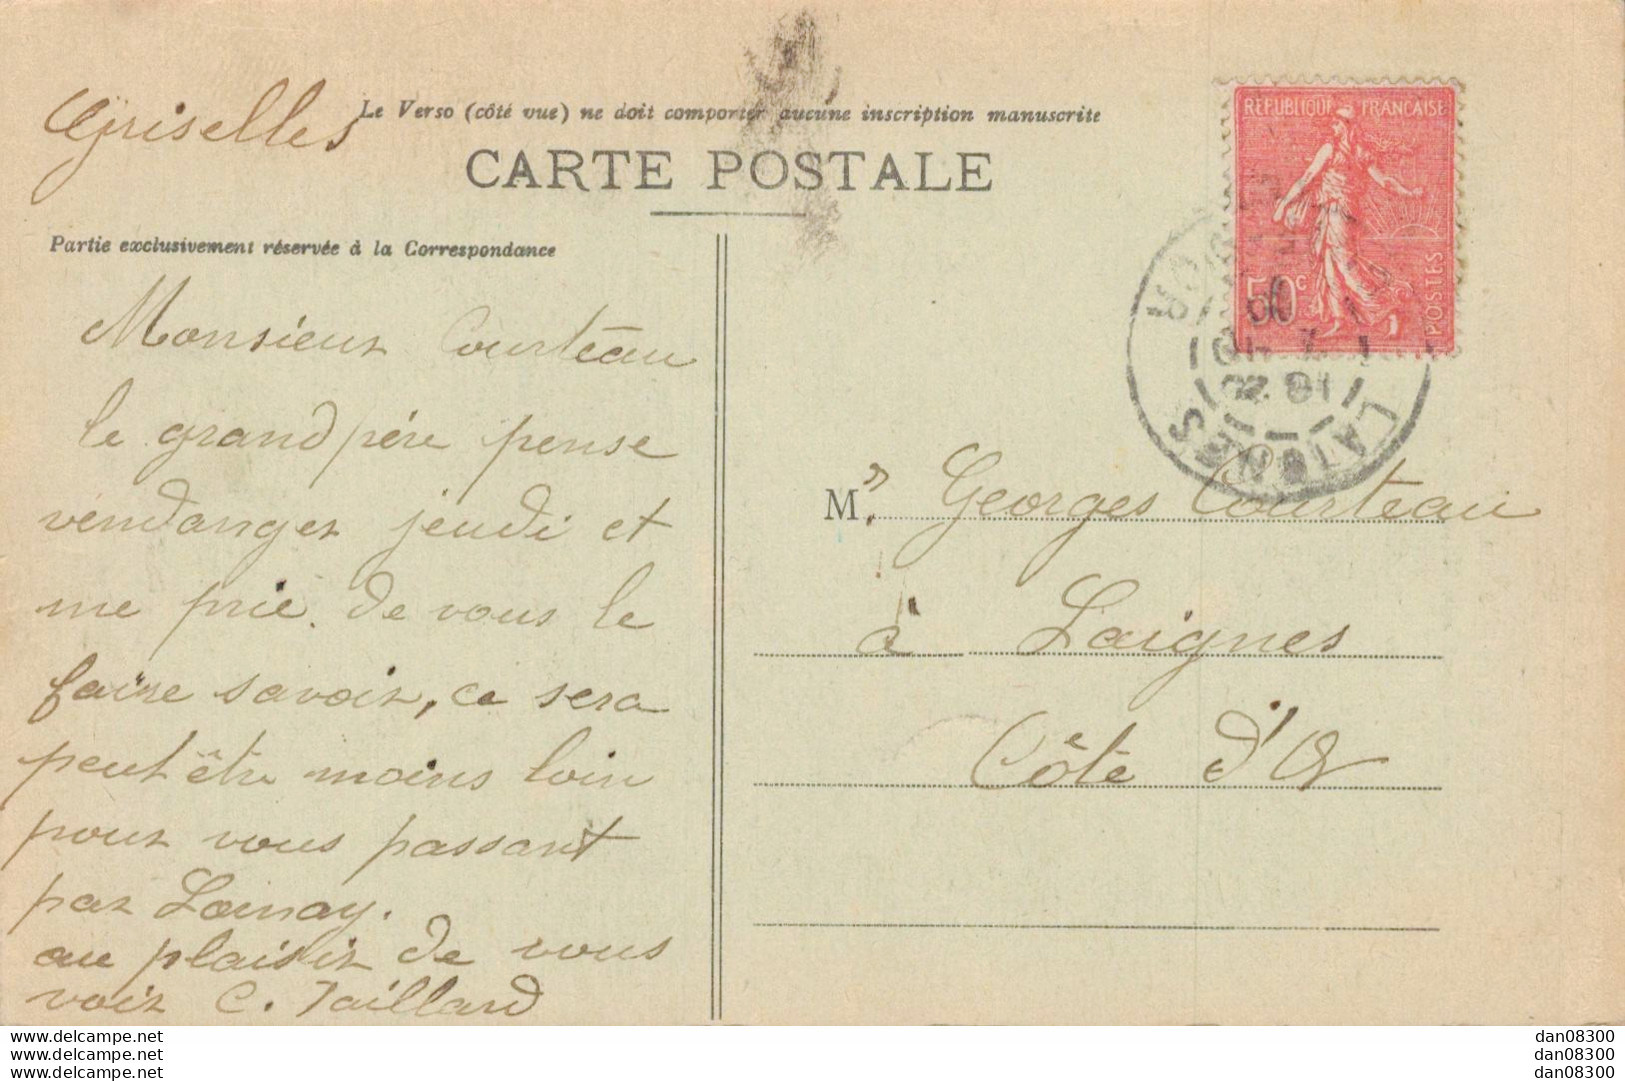 Griselles
Le Verso (côté vue) ne doit comporter aucune inscription manuscrite
CARTE POSTALE
Partie exclusivement réservée à la Correspondance
Monsieur Courteau
le grand père pense
vendanger jeudi et
me prie de vous le
faire savoir, ce sera
peut être moins loin
pour vous passant
par Lainay.
au plaisir de vous
voir C. Taillard
REPUBLIQUE FRANCAISE
50c
POSTES
LAIGNES
CÔTE D'OR
Mr Georges Courteau
à Laignes
Côte d'Or
www.delcampe.net
www.delcampe.net
www.delcampe.net
dan08300
dan08300
dan08300